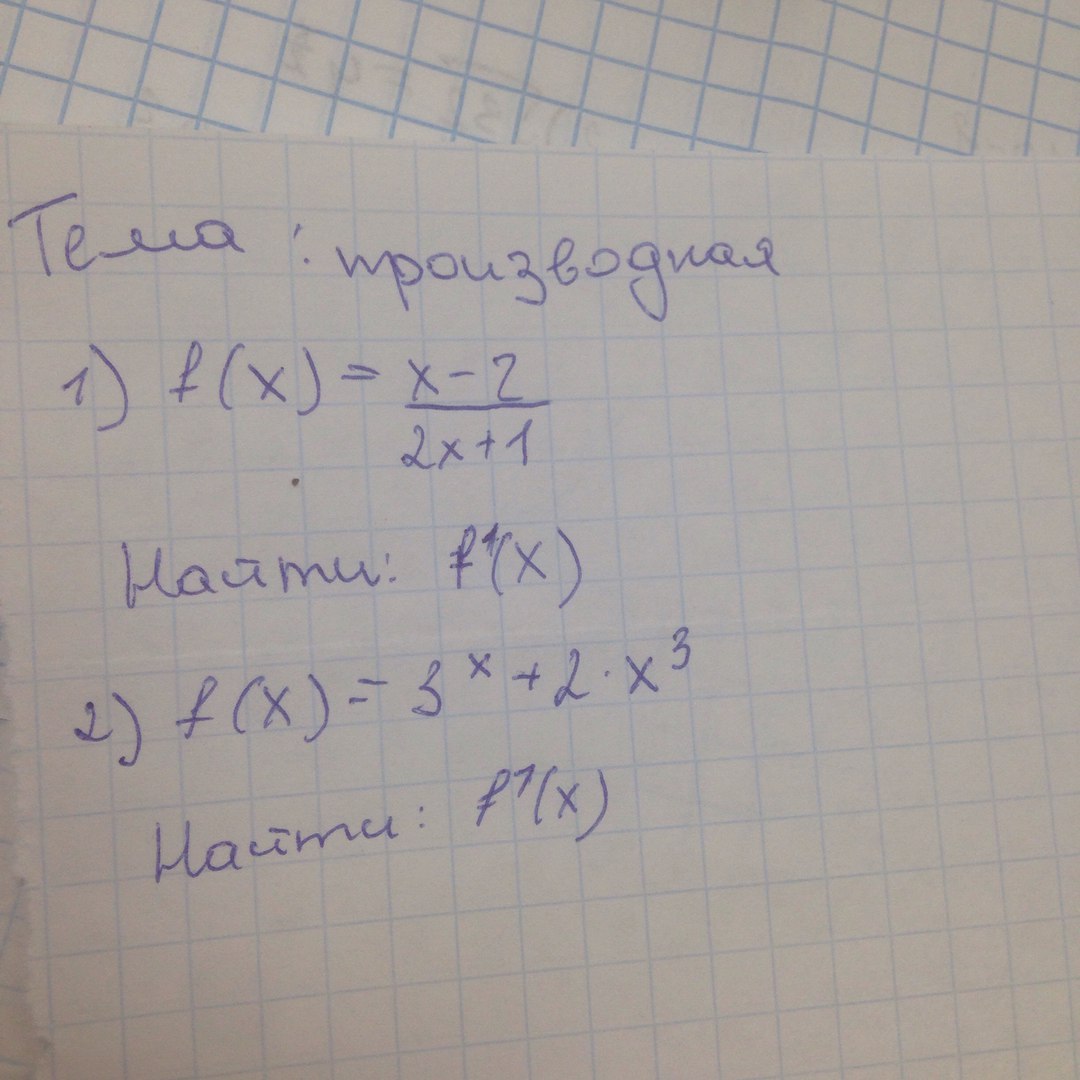 Тема: производная
1) f(x) = x-2
2x+1
Найти: f'(x)
2) f(x) = 3^x + 2·x^3
Найти: f'(x)